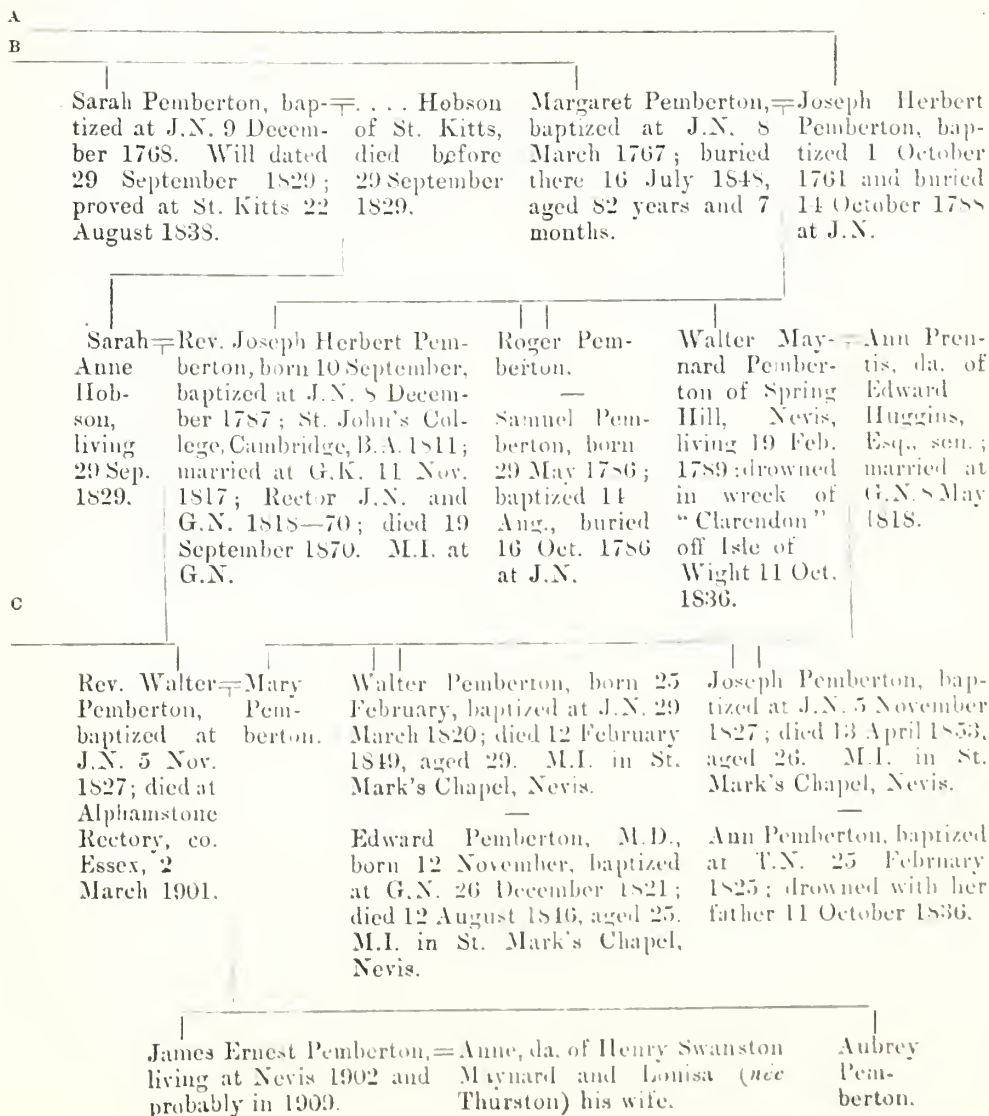 A
B
Sarah Pemberton, bap-
tized at J.N. 9 Decem-
ber 1768. Will dated
29 September 1829;
proved at St. Kitts 22
August 1838.
=. . . . Hobson
of St. Kitts,
died before
29 September
1829.
Margaret Pemberton,=
baptized at J.N. 8
March 1767; buried
there 16 July 1848,
aged 82 years and 7
months.
Joseph Herbert
Pemberton, bap-
tized 1 October
1761 and buried
14 October 1788
at J.N.
Sarah=
Anne
Hob-
son,
living
29 Sep.
1829.
Rev. Joseph Herbert Pem-
berton, born 10 September,
baptized at J.N. 8 Decem-
ber 1787; St. John's Col-
lege, Cambridge, B.A. 1811;
married at G.K. 11 Nov.
1817; Rector J.N. and
G.N. 1818—70; died 19
September 1870. M.I. at
G.N.
Roger Pem-
berton.
—
Samuel Pem-
berton, born
29 May 1786;
baptized 14
Aug., buried
16 Oct. 1786
at J.N.
Walter May-
nard Pember-
ton of Spring
Hill, Nevis,
living 19 Feb.
1789; drowned
in wreck of
"Clarendon"
off Isle of
Wight 11 Oct.
1836.
=Ann Pren-
tis, da. of
Edward
Huggins,
Esq., sen.;
married at
G.N. 8 May
1818.
C
Rev. Walter=
Pemberton,
baptized at
J.N. 5 Nov.
1827; died at
Alphamstone
Rectory, co.
Essex, 2
March 1901.
Mary
Pem-
berton.
Walter Pemberton, born 25
February, baptized at J.N. 29
March 1820; died 12 February
1849, aged 29. M.I. in St.
Mark's Chapel, Nevis.
—
Edward Pemberton, M.D.,
born 12 November, baptized
at G.N. 26 December 1821;
died 12 August 1846, aged 25.
M.I. in St. Mark's Chapel,
Nevis.
Joseph Pemberton, bap-
tized at J.N. 5 November
1827; died 13 April 1853,
aged 26. M.I. in St.
Mark's Chapel, Nevis.
—
Ann Pemberton, baptized
at T.N. 25 February
1825; drowned with her
father 11 October 1836.
James Ernest Pemberton,=
living at Nevis 1902 and
probably in 1909.
Anne, da. of Henry Swanston
Maynard and Louisa (née
Thurston) his wife.
Aubrey
Pem-
berton.